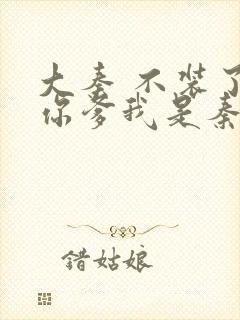 大秦 不装了
你爹我是秦
错姑娘